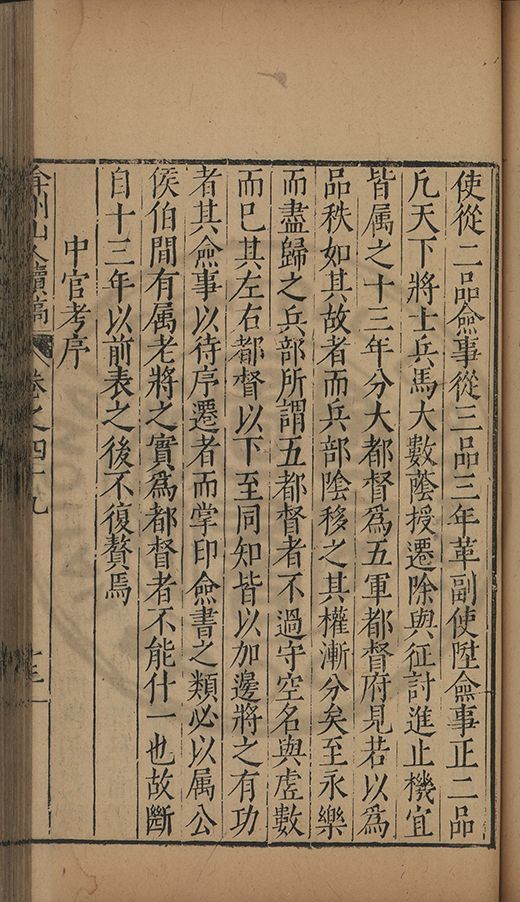 使從二品僉事從三品三年革副使陞僉事正二品
凢天下將士兵馬大數蔭授遷除與征討進止機宜
皆属之十三年分大都督爲五軍都督府見若以爲
品秩如其故者而兵部陰移之其權漸分矣至永樂
而盡歸之兵部所謂五都督者不過守空名與虗數
而已其左右都督以下至同知皆以加邊將之有功
者其僉事以待序遷者而掌印僉書之類必以属公
侯伯間有属老將之實爲都督者不能什一也故斷
自十三年以前表之後不復贅焉
中官考序
弇州山人續稿 卷之四十九